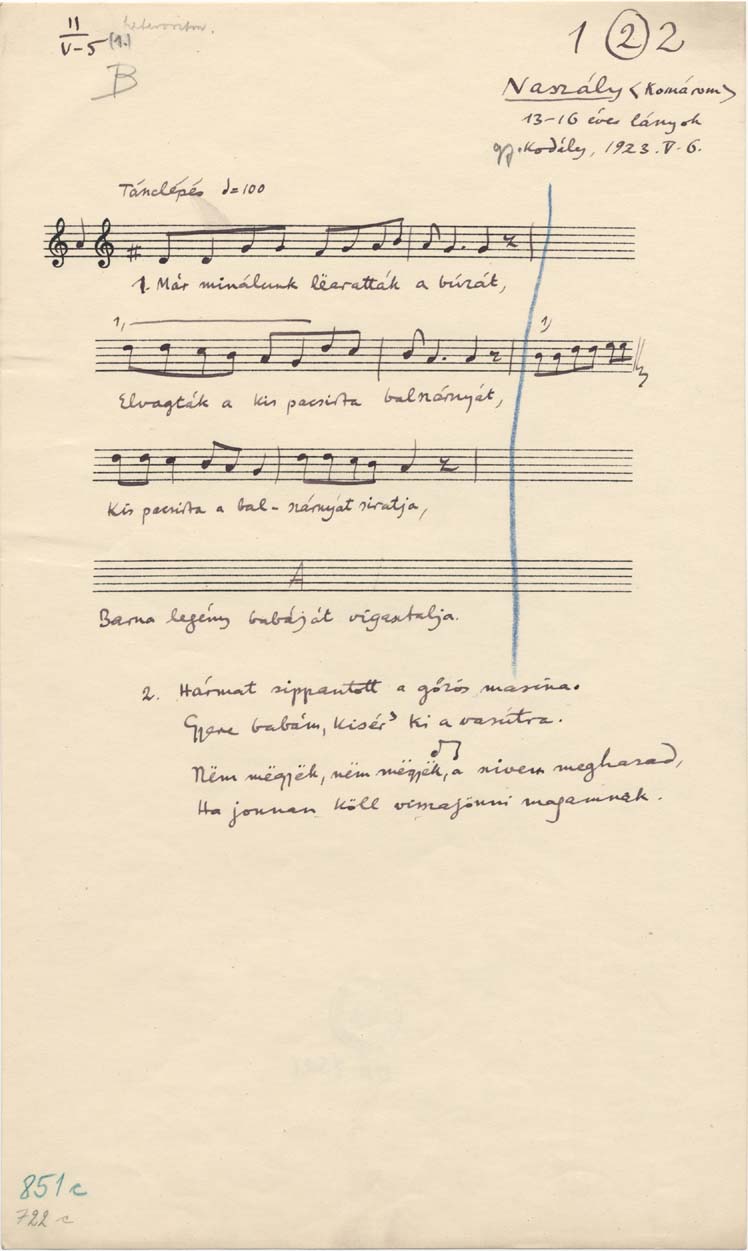 II
V-5 (1.)
B
1 2 2
Naszály (Komárom)
13-16 éves lányok
gy. Kodály, 1923. V. 6.
Tánclépés =100
1. Már minálunk lëaratták a búzát,
1,
1)
Elvagták a kis pacsirta balszárnyát,
Kis pacsirta a bal- szárnyát siratja,
A
Barna legény babáját vigasztalja.
2. Hármat sippantott a gőzös masina.
Gyere babám, kisérj ki a vasútra.
Nëm mëgyëk, nëm mëgyëk, a szivem meghasad,
Ha jonnan köll visszajönni magamnak.
851 c
722 c